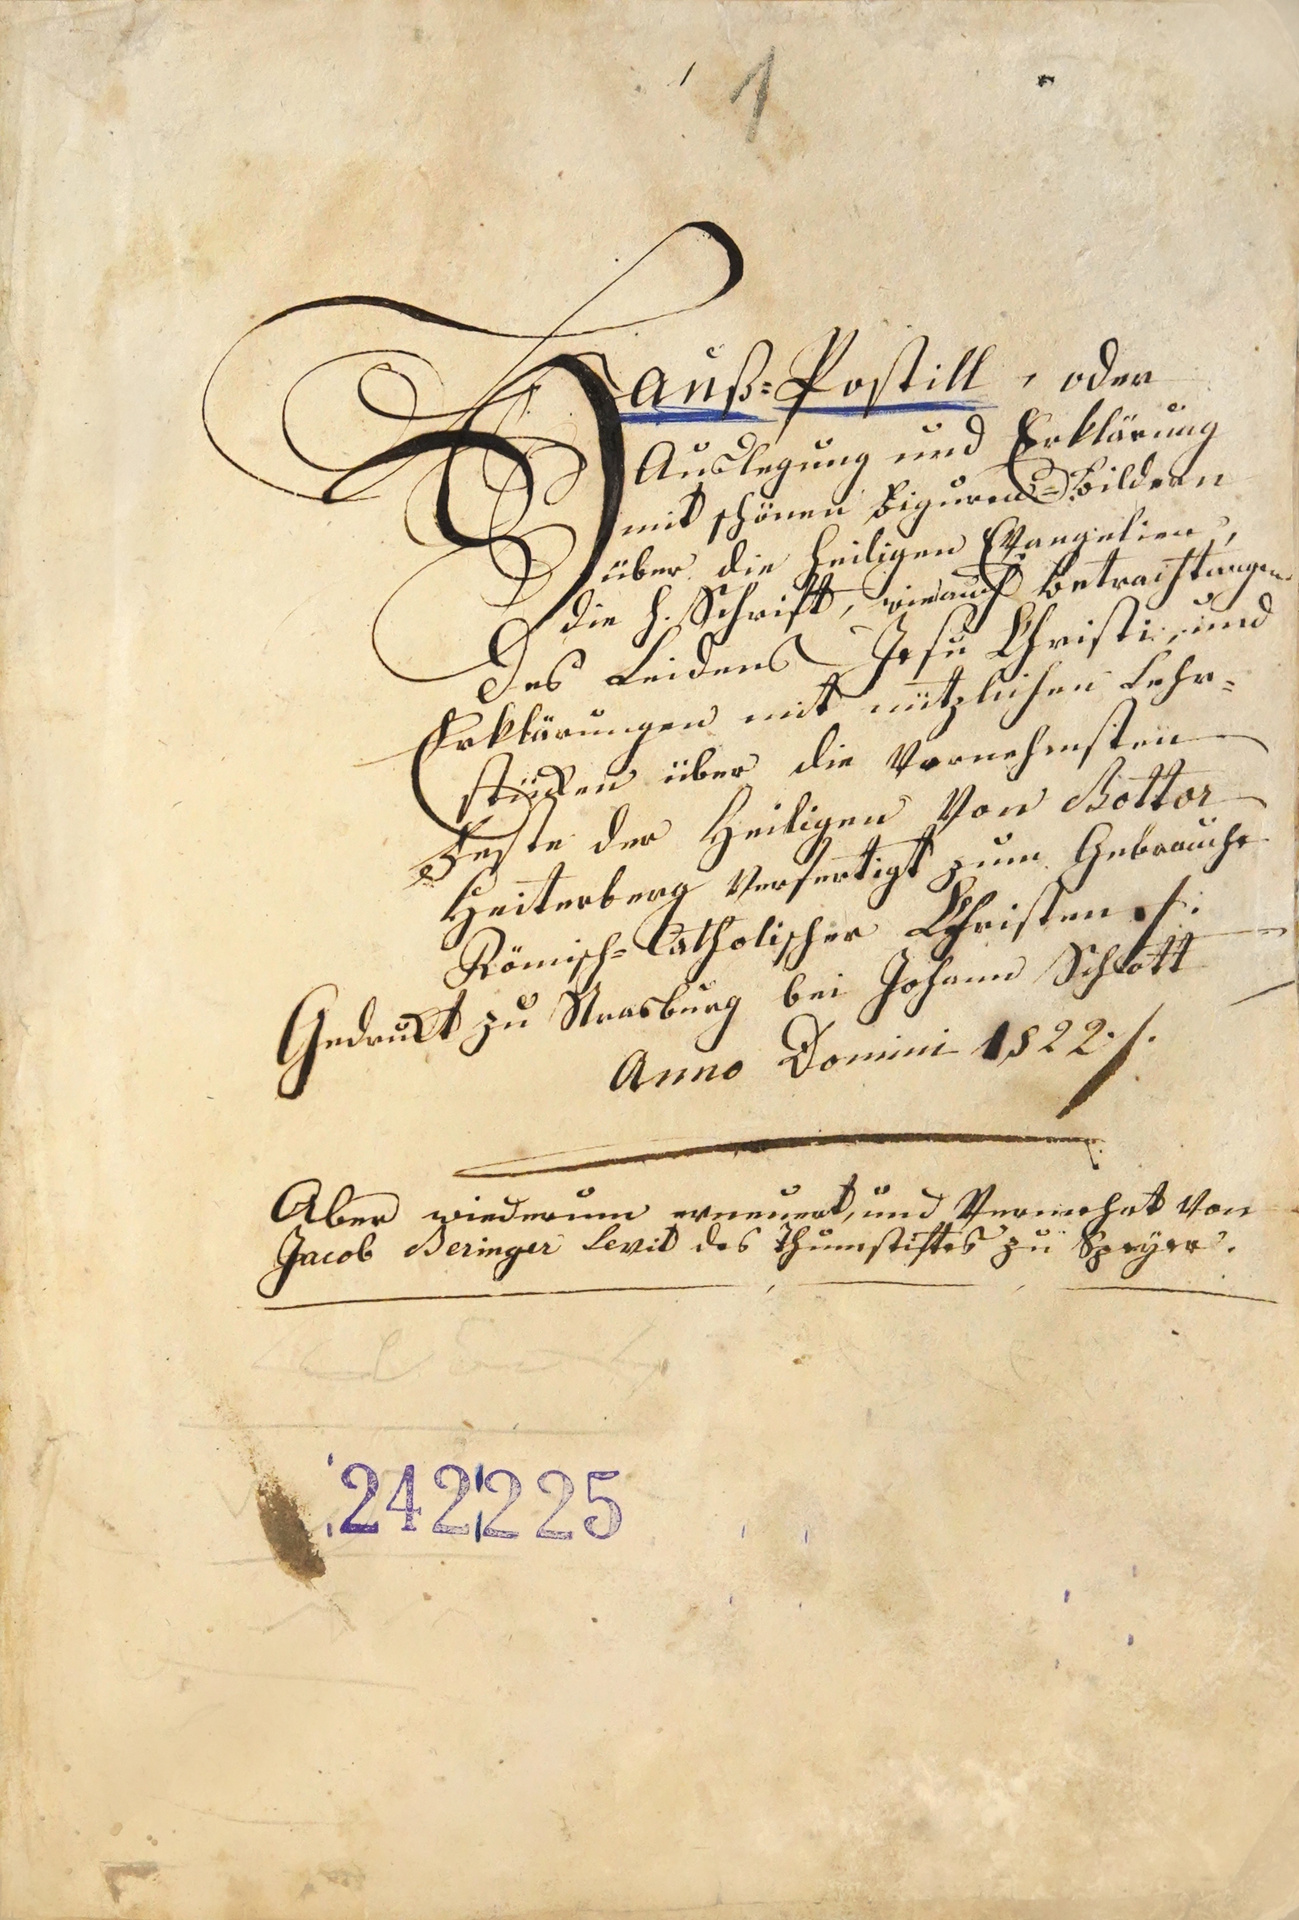 1
Hauß=Postill, oder
Auslegung und Erklärung
mit schönen Figuren=Bildern
über die heiligen Evangelien,
die h. Schrift, wieauch Betrachtungen
des Leidens Jesu Christi, und
Erklärungen mit nützlichen Lehr=
stücken über die Vornehmsten
Feste der Heiligen Von Bottor
Heiterberg Verfertigt zum Gebrauche
Römisch=Catholischer Christen ./.
Gedruckt zu Strasburg bei Johann Schott
Anno Domini 1522 ./.
Aber wiederum erneuert, und Vermehrt Von
Jacob Beringer Levit des Thumstiftes zu Speÿer.
242225